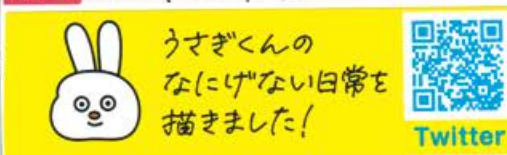 うさぎくんの
なにげない日常を
描きました!
Twitter